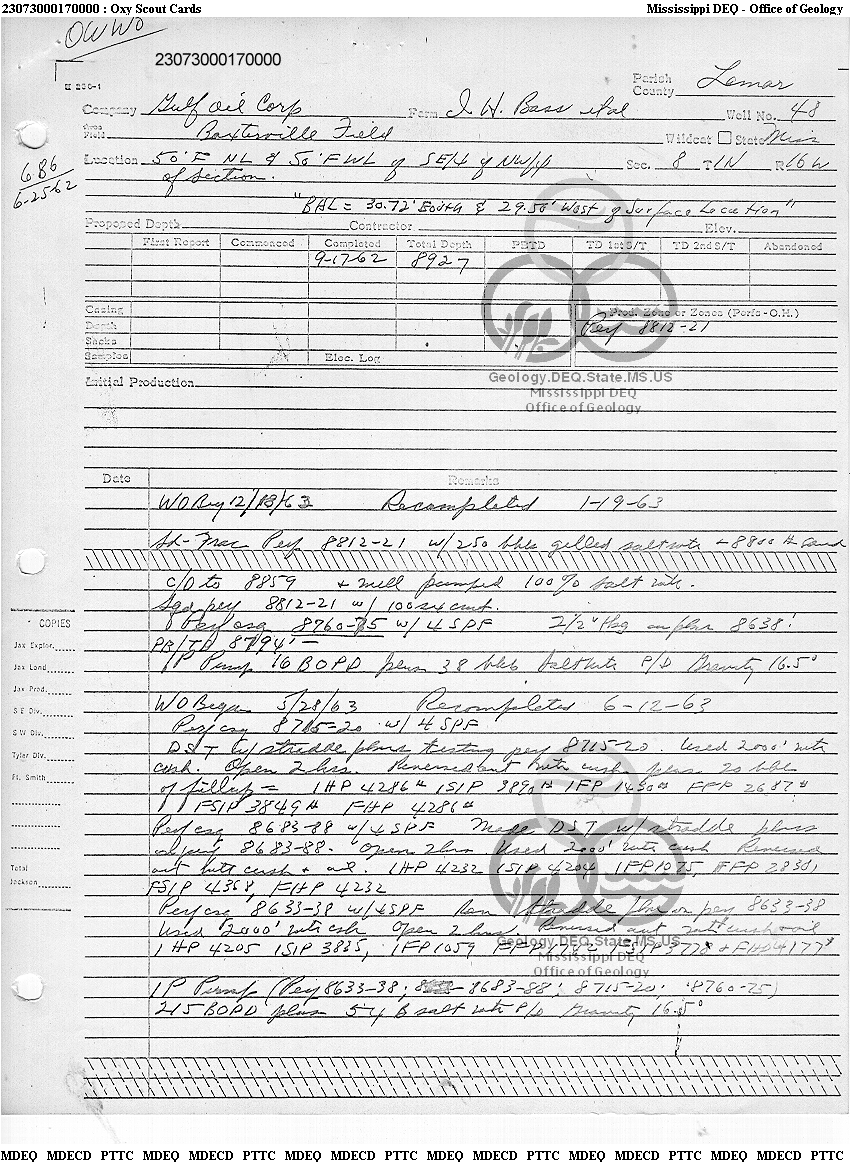 23073000170000 : Oxy Scout Cards Mississippi DEQ - Office of Geology
OWWO
23073000170000
Parish
County Lamar
Company Gulf Oil Corp Farm I. H. Bass et al Well No. 48
Area
Field Baxterville Field Wildcat State Miss
Location 50' F NL & 50' FWL of SE/4 of NW/4 Sec. 8 T 1N R 16W
686
6-25-62
of Section.
"BHL = 30.72' South & 29.50' West of Surface Location"
Proposed Depth Contractor Elev.
First Report Commenced Completed Total Depth PBTD TD 1st S/T TD 2nd S/T Abandoned
9-17-62 8927
Casing Prod. Zone or Zones (Perfs - O.H.)
Depth Perf 8812-21
Sacks
Samples Elec. Log
Geology.DEQ.State.MS.US
Mississippi DEQ
Office of Geology
Initial Production
Date Remarks
WO Beg 12/13/63 Recompleted 1-19-63
Sd-Frac Perf 8812-21 w/250 bbls gelled saltwtr + 8800 # sand
C/O to 8859 + well pumped 100% salt wtr.
Sqd perf 8812-21 w/ 100 sx cmt.
Perf csg 8760-75 w/ 4 SPF 2 1/2" tbg on pkr 8638'
PB/TD 8794'
IP Pump 16 BOPD plus 38 bbls saltwtr P/D Gravity 16.5°
WO Began 5/28/63 Recompleted 6-12-63
Perf csg 8715-20 w/ 4 SPF
DST w/ straddle pkrs testing perf 8715-20. Used 2000' wtr
cush. Open 2 hrs. Reversed out wtr cush plus 20 bbls
of fillup = IHP 4286# ISIP 3890# IFP 1430# FFP 2687#
FSIP 3849# FHP 4286#
Perf csg 8683-88 w/4 SPF Made DST w/ straddle pkrs
8683-88. Open 2 hrs Used 2000' wtr cush Reversed
out wtr cush + oil. IHP 4232 ISIP 4204 IFP 1075, FFP 2838,
FSIP 4368, FHP 4232
Perf csg 8633-38 w/4SPF Ran straddle pkr on perf 8633-38
Used 2000' wtr cush Open 2 hrs. Reversed out wtr cush + oil
IHP 4205 ISIP 3835, IFP 1059 FSIP 3778 & FHP 4177#
Geology.DEQ.State.MS.US
Mississippi DEQ
Office of Geology
IP Pump (Perf 8633-38; 8683-88'; 8715-20; 8760-75)
215 BOPD plus 54 B salt wtr P/D Gravity 16.5°
COPIES
Jax Explor.
Jax Land
Jax Prod.
S E Div.
S W Div.
Tyler Div.
Ft. Smith
Total
Jackson
MDEQ MDECD PTTC MDEQ MDECD PTTC MDEQ MDECD PTTC MDEQ MDECD PTTC MDEQ MDECD PTTC MDEQ MDECD PTTC